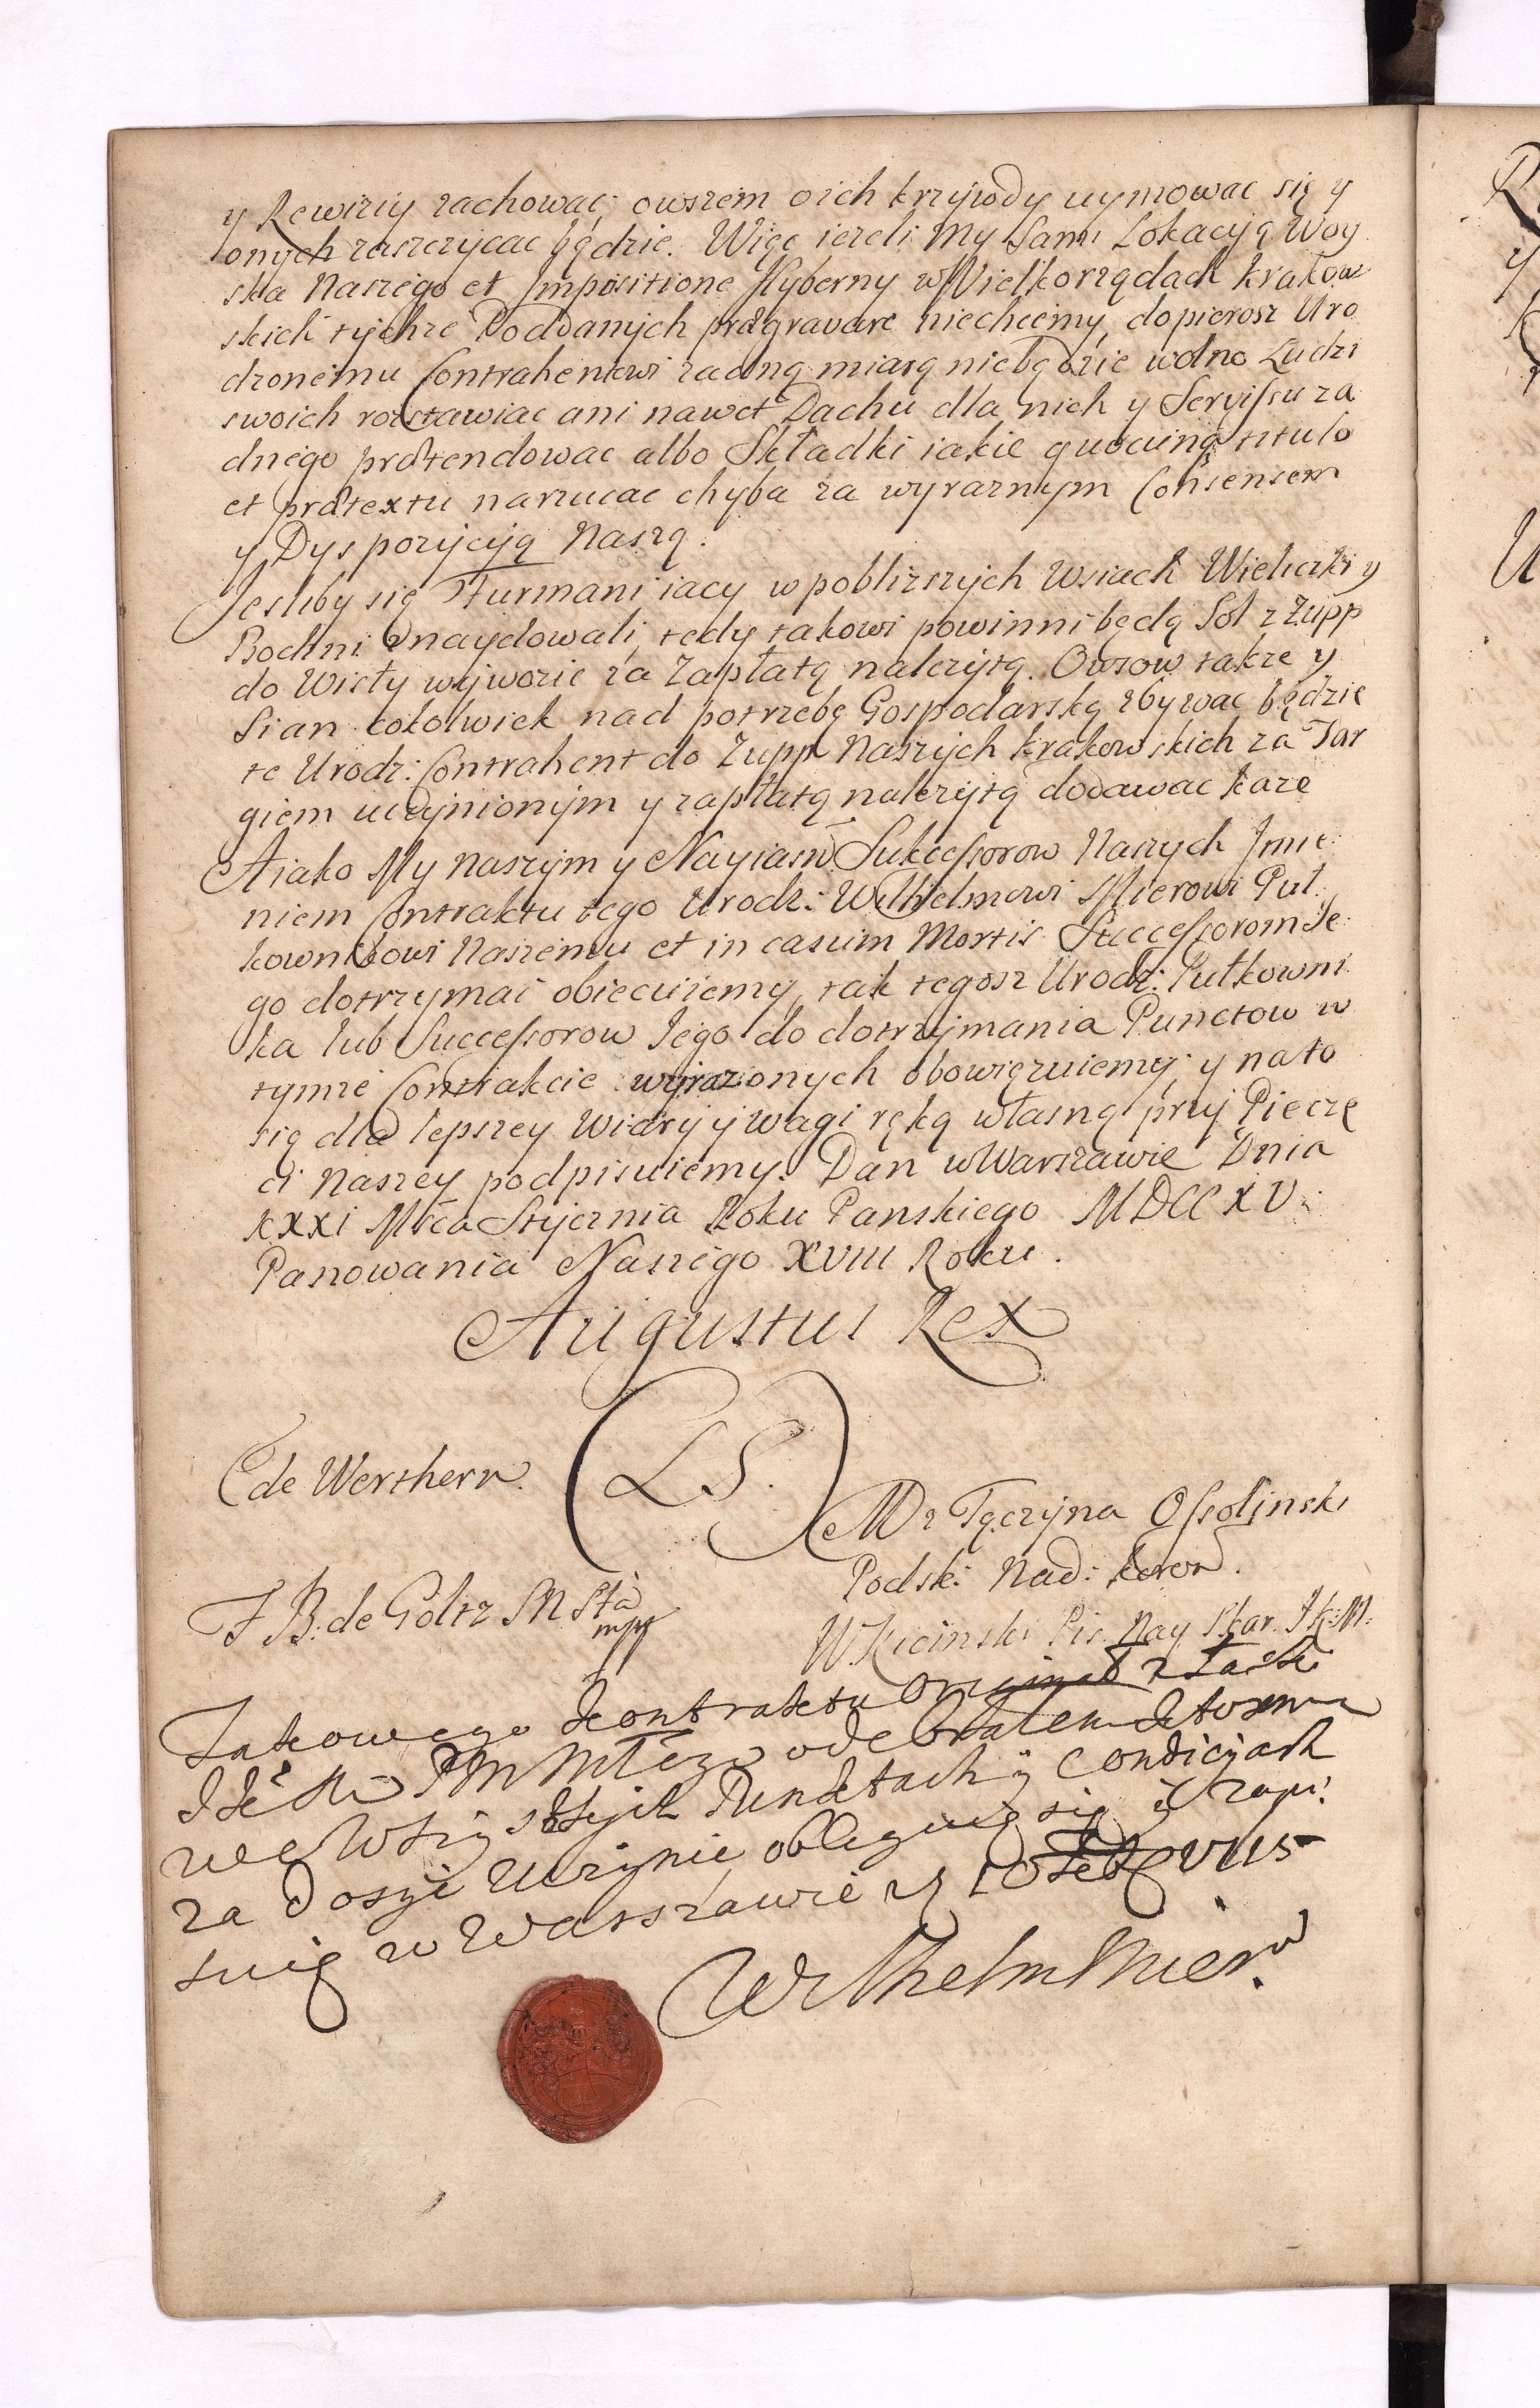 y Rewiziy zachowac; owszem o ich krzywdy uymowac się y
onych zaszczycac będzie. Więc iezeli My Sami Lokacyią Woy
ska Naszego et Impositione Hyberny w Wielkorządach Krakow
skich tychze Poddanych prægravare niechcemy, dopierosz Uro
dzonemu Contrahentowi zadną miarą niebędzie wolno Ludzi
swoich rozstawiac ani nawet Dachu dla nich y Servissu za
dnego prætendowac albo Składki iakie quocunq titulo
et prætextu narzucac chyba za wyraznym Consensem
y Dyspozycyią Naszą.
Jesliby się Furmani iacy w poblizszych Wsiach Wieliczki y
Bochni znaydowali, tedy takowi powinni będą Sol z Zupp
do Wisły wywozic za Zapłatą nalezytą. Owsow takze y
Sian cokolwiek nad potrzebę Gospodarską zbywac będzie
te Urodz: Contrahent do Zupp Naszych Krakowskich za Tar
giem uczynionym y zapłatą nalezytą dodawac kaze
A iako My naszym y Nayiasn Sukcessorow Naszych Imie
niem Contraktu tego Urodz: Wilhelmowi Mierowi Puł
kownikowi Naszemu et in casum Mortis Successorom Je
go dotrzymac obiecuiemy, tak tegosz Urodz: Pułkowni
ka lub Successorow Jego do dotrzymania Punctow w
tymze Contrakcie wyrazonych obowięzuiemy; y na to
się dla lepszey Wiary y wagi ręką własną przy Pieczę
ci Naszey podpisuiemy. Dan w Warszawie Dnia
XXXI Mca Stycznia Roku Panskiego MDCCXV.
Panowania Naszego XVIII Roku.
Augustus Rex
(L.S.)
C de Werthern.
M z Tęczyna Ossolinski
Podsk: Nad: Koron.
F B: de Goltz M Sta
mpp
W Kicinski Pis. Nay Skar. J K: M:
Takowego Kontraktu Originał z Łaski
P M Młego odebrałem ktoremu
we wszystkych Punktach y Condicyach
za dosyc uczynic obliguię się y zapi
suię w Warszawie
Wilhelm Mier.